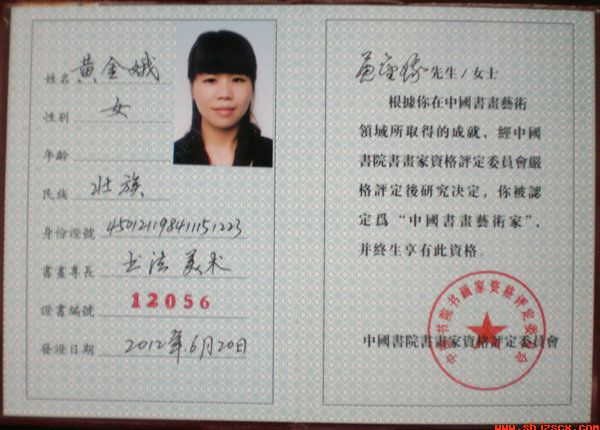 姓名 黄金娥
性別 女
年齡
民族 壮族
身份證號 450121198411151223
書畫專長 书法 美术
證書編號 12056
發證日期 2012年.6月20日
黄金娥 先生/女士
根據你在中國書畫藝術
領域所取得的成就，經中國
書院書畫家資格評定委員會嚴
格評定後研究决定，你被認
定爲“中國書畫藝術家”，
并終生享有此資格。
中國書院書畫家資格評定委員會
中国书院书画家资格评定委员会
www.shjzscx.com